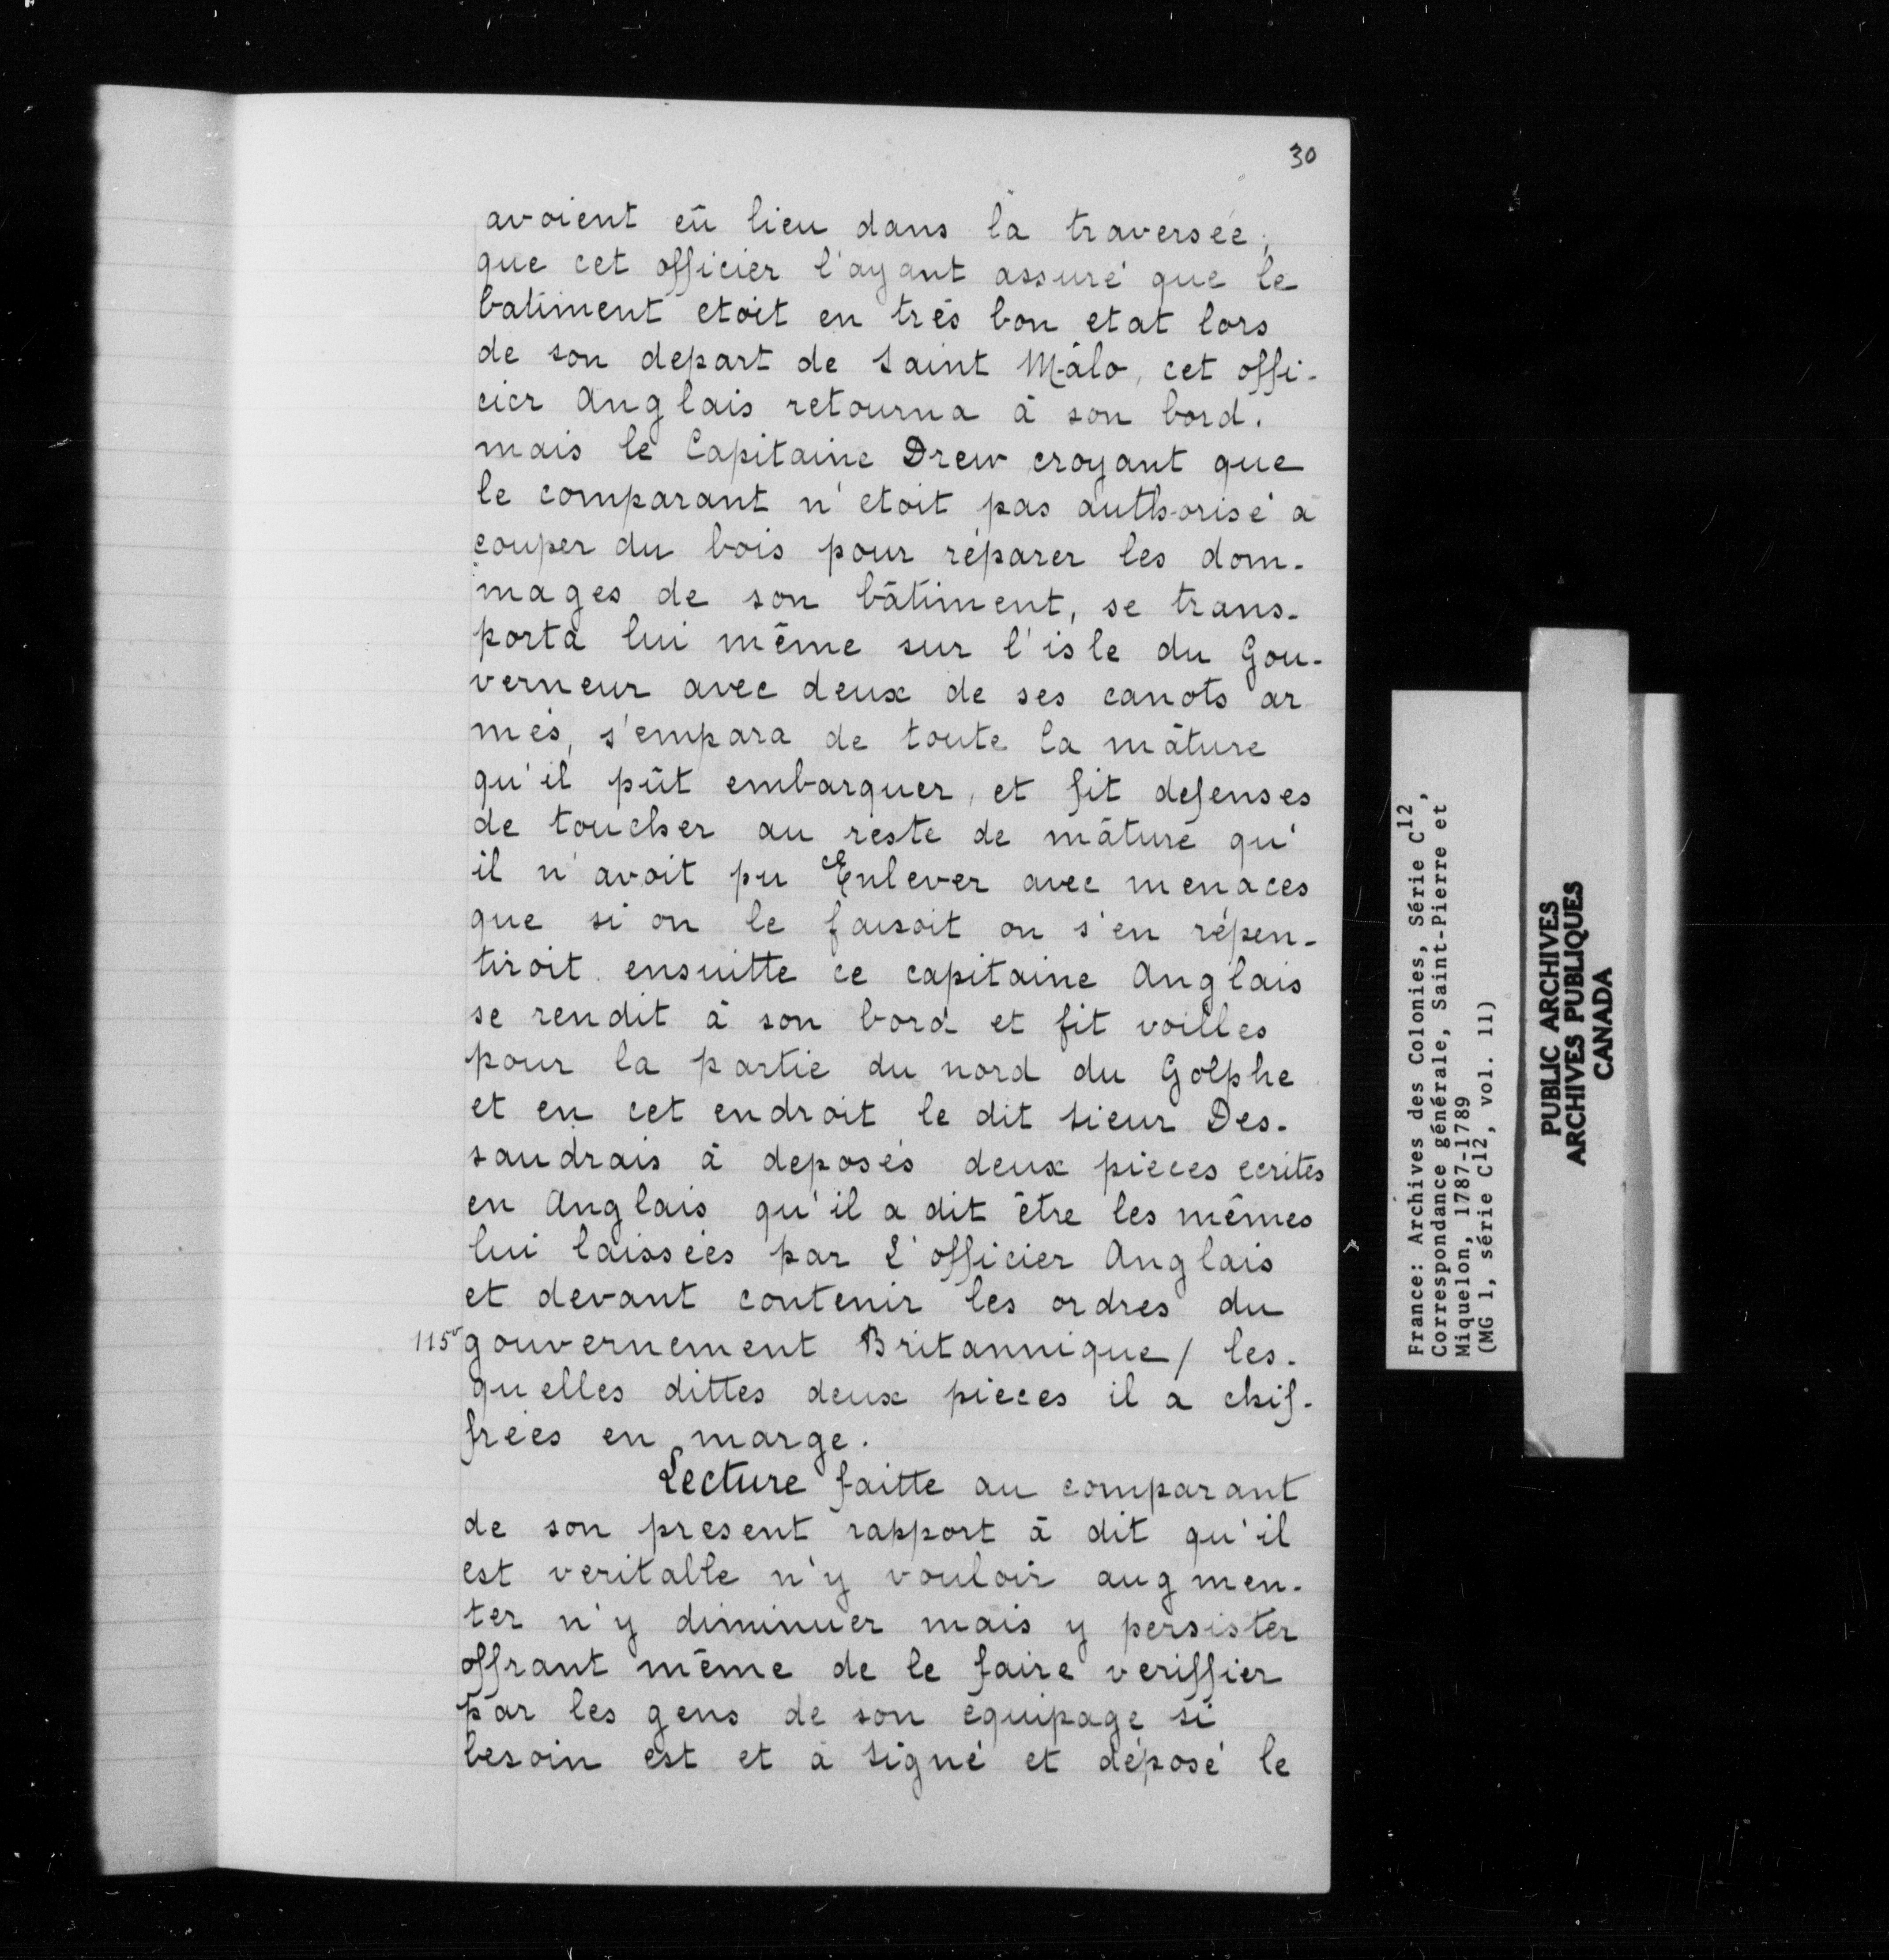 30
avoient eû lieu dans la traversée;
que cet officier l'ayant assuré que le
batiment etoit en très bon etat lors
de son depart de Saint Mâlo, cet offi-
cier Anglais retourna à son bord.
mais le Capitaine Drew croyant que
le comparant n'etoit pas authorisé à
couper du bois pour réparer les dom-
mages de son bâtiment, se trans-
porta lui même sur l'isle du Gou-
verneur avec deux de ses canots ar
més, s'empara de toute la mâture
qu'il pût embarquer, et fit defenses
de toucher au reste de mâture qu'
il n'avoit pu Enlever avec menaces
que si on le faisoit on s'en répen-
tiroit ensuitte ce capitaine Anglais
se rendit à son bord et fit voilles
pour la partie du nord du Golphe
et en cet endroit le dit Sieur Des-
saudrais à deposés deux pièces ecrites
en Anglais qu'il a dit être les mêmes
lui laissées par L'officier Anglais
et devant contenir les ordres du
115v gouvernement Britannique / les-
quelles dittes deux pièces il a chif-
frées en marge.
Lecture faitte au comparant
de son present rapport à dit qu'il
est veritable n'y vouloir augmen-
ter n'y diminuer mais y persister
offrant même de le faire veriffier
par les gens de son equipage si
besoin est et à signé et déposé le
France: Archives des Colonies, Série C12,
Correspondance générale, Saint-Pierre et
Miquelon, 1787-1789
(MG 1, série C12, vol. 11)
PUBLIC ARCHIVES
ARCHIVES PUBLIQUES
CANADA